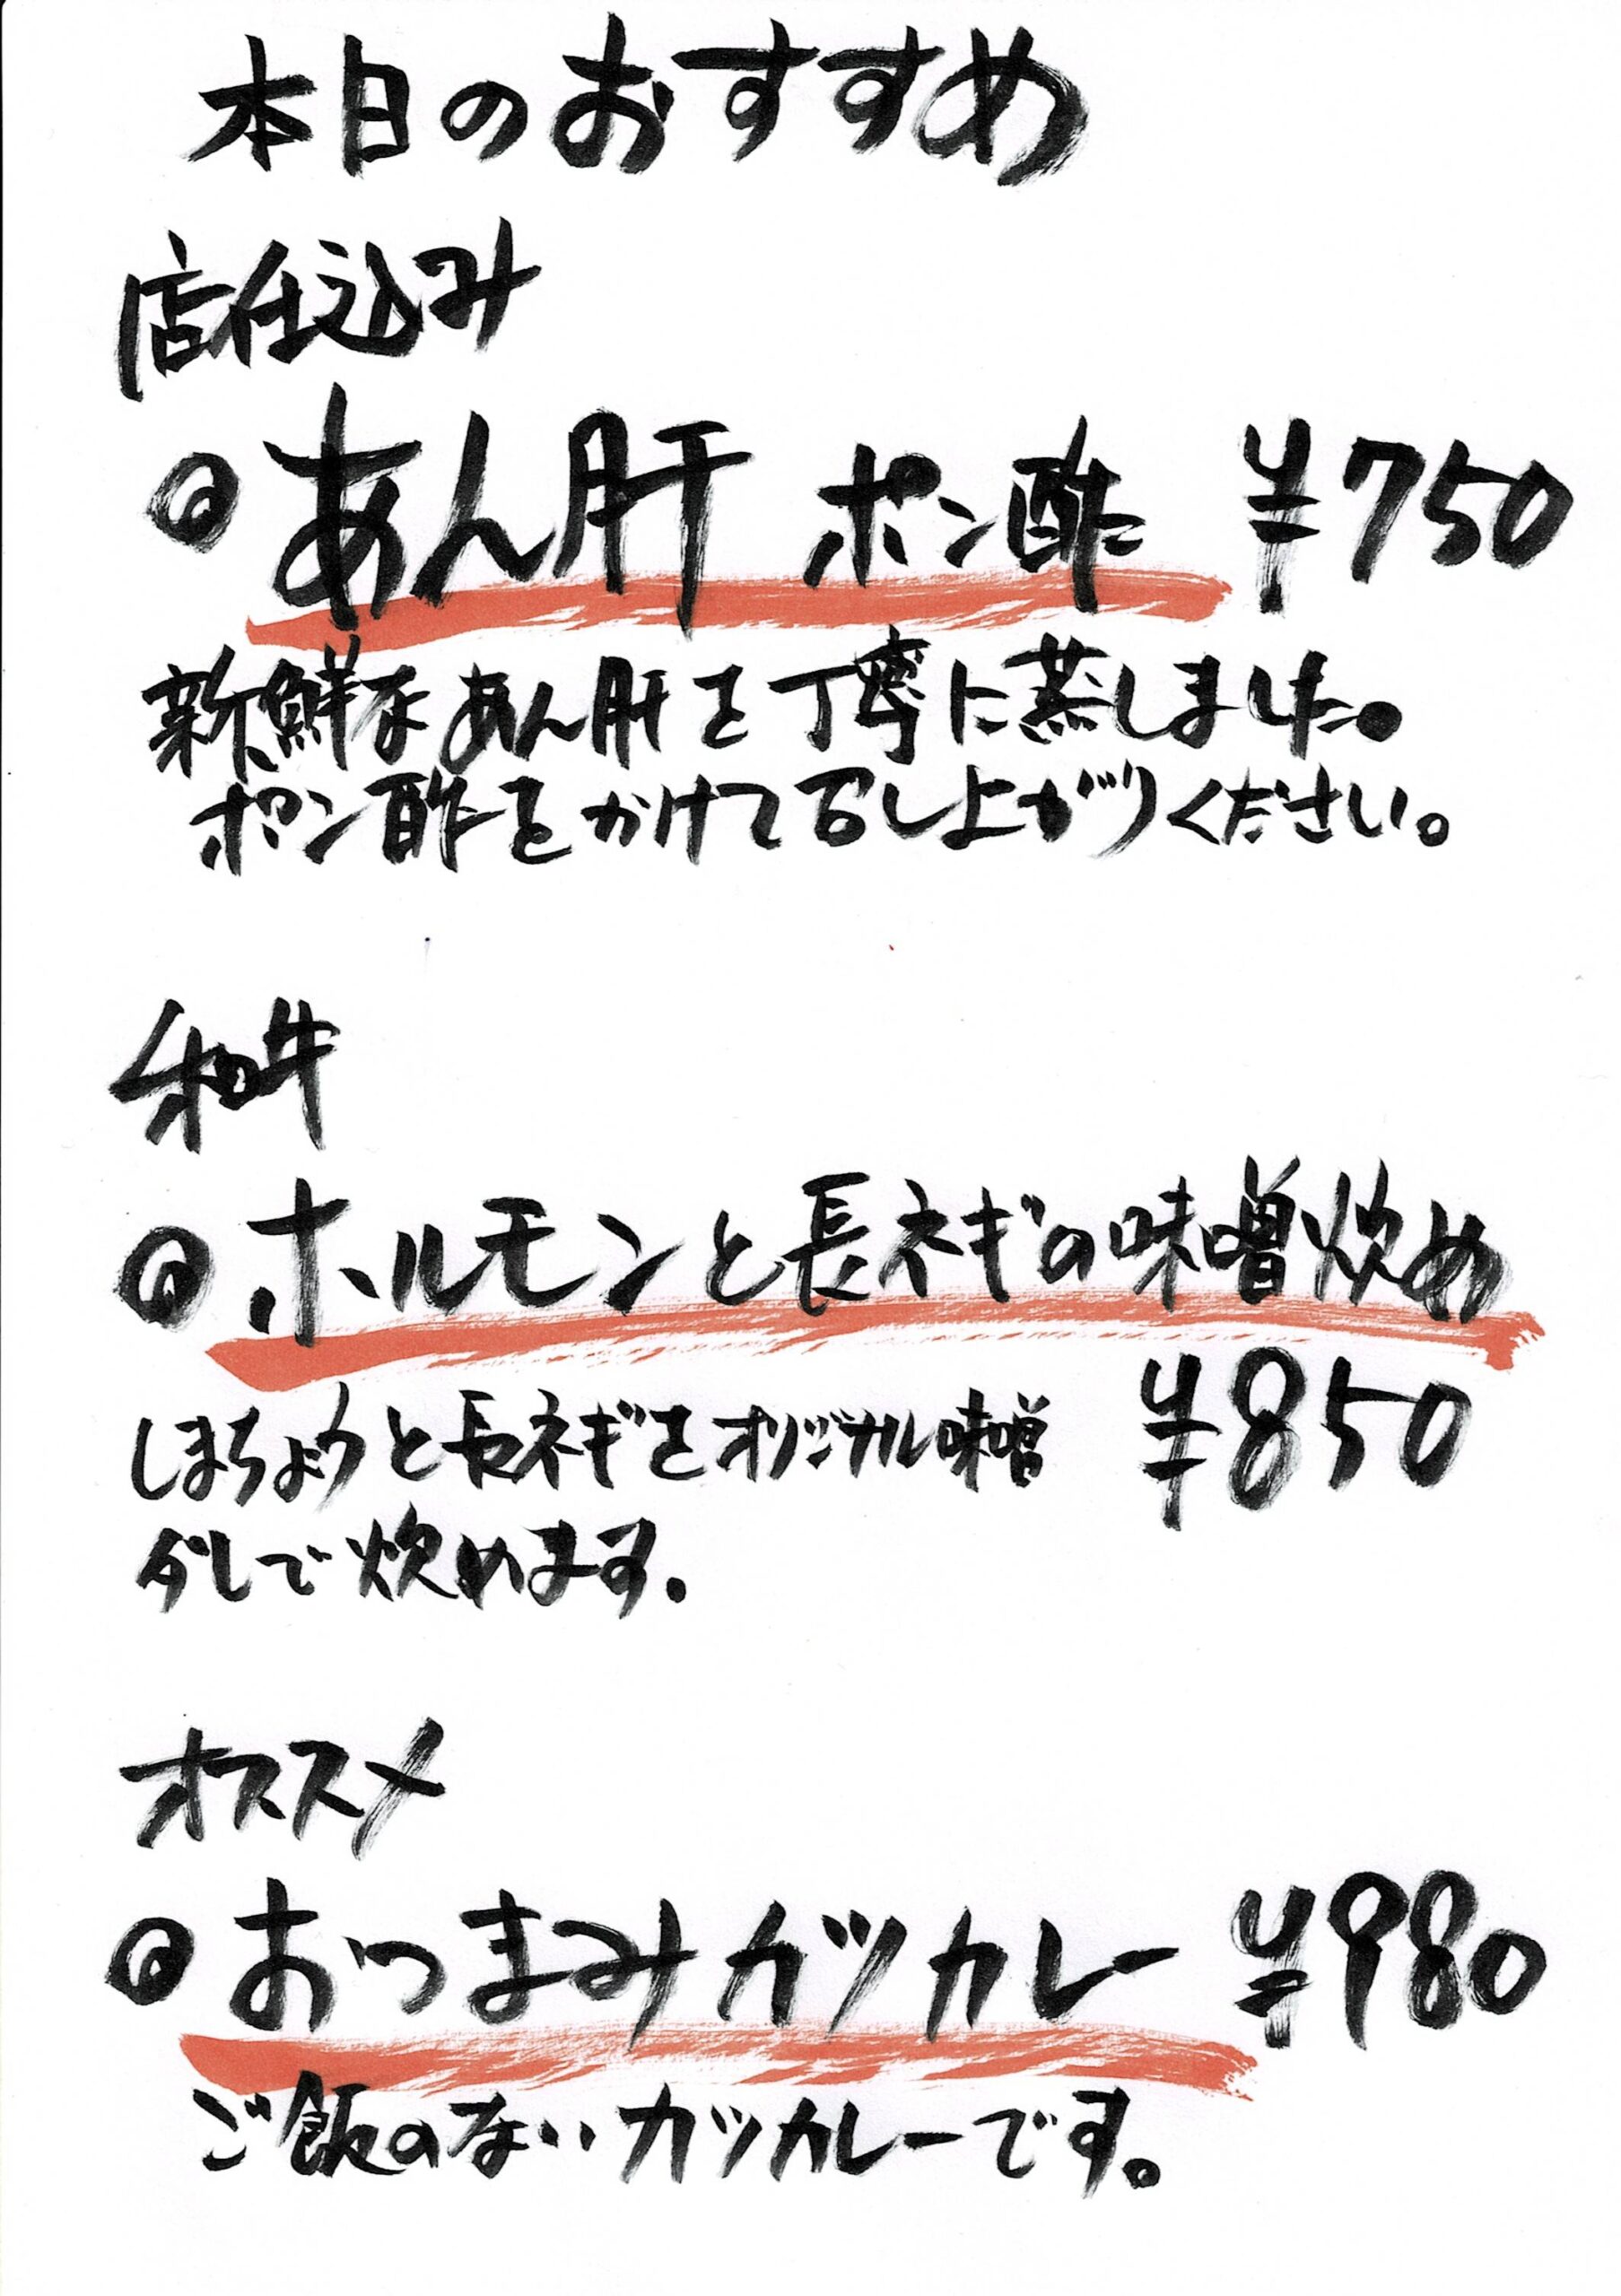 本日のおすすめ
店仕込み
◎あん肝 ポン酢 ¥750
新鮮なあん肝を丁寧に蒸しました。
ポン酢をかけて召し上がりください。
和牛
◎ホルモンと長ネギの味噌炊め
¥850
しまちょうと長ネギをオリジナル味噌
ダレで炊めます。
オススメ
◎おつまみカツカレー ¥980
ご飯のないカツカレーです。